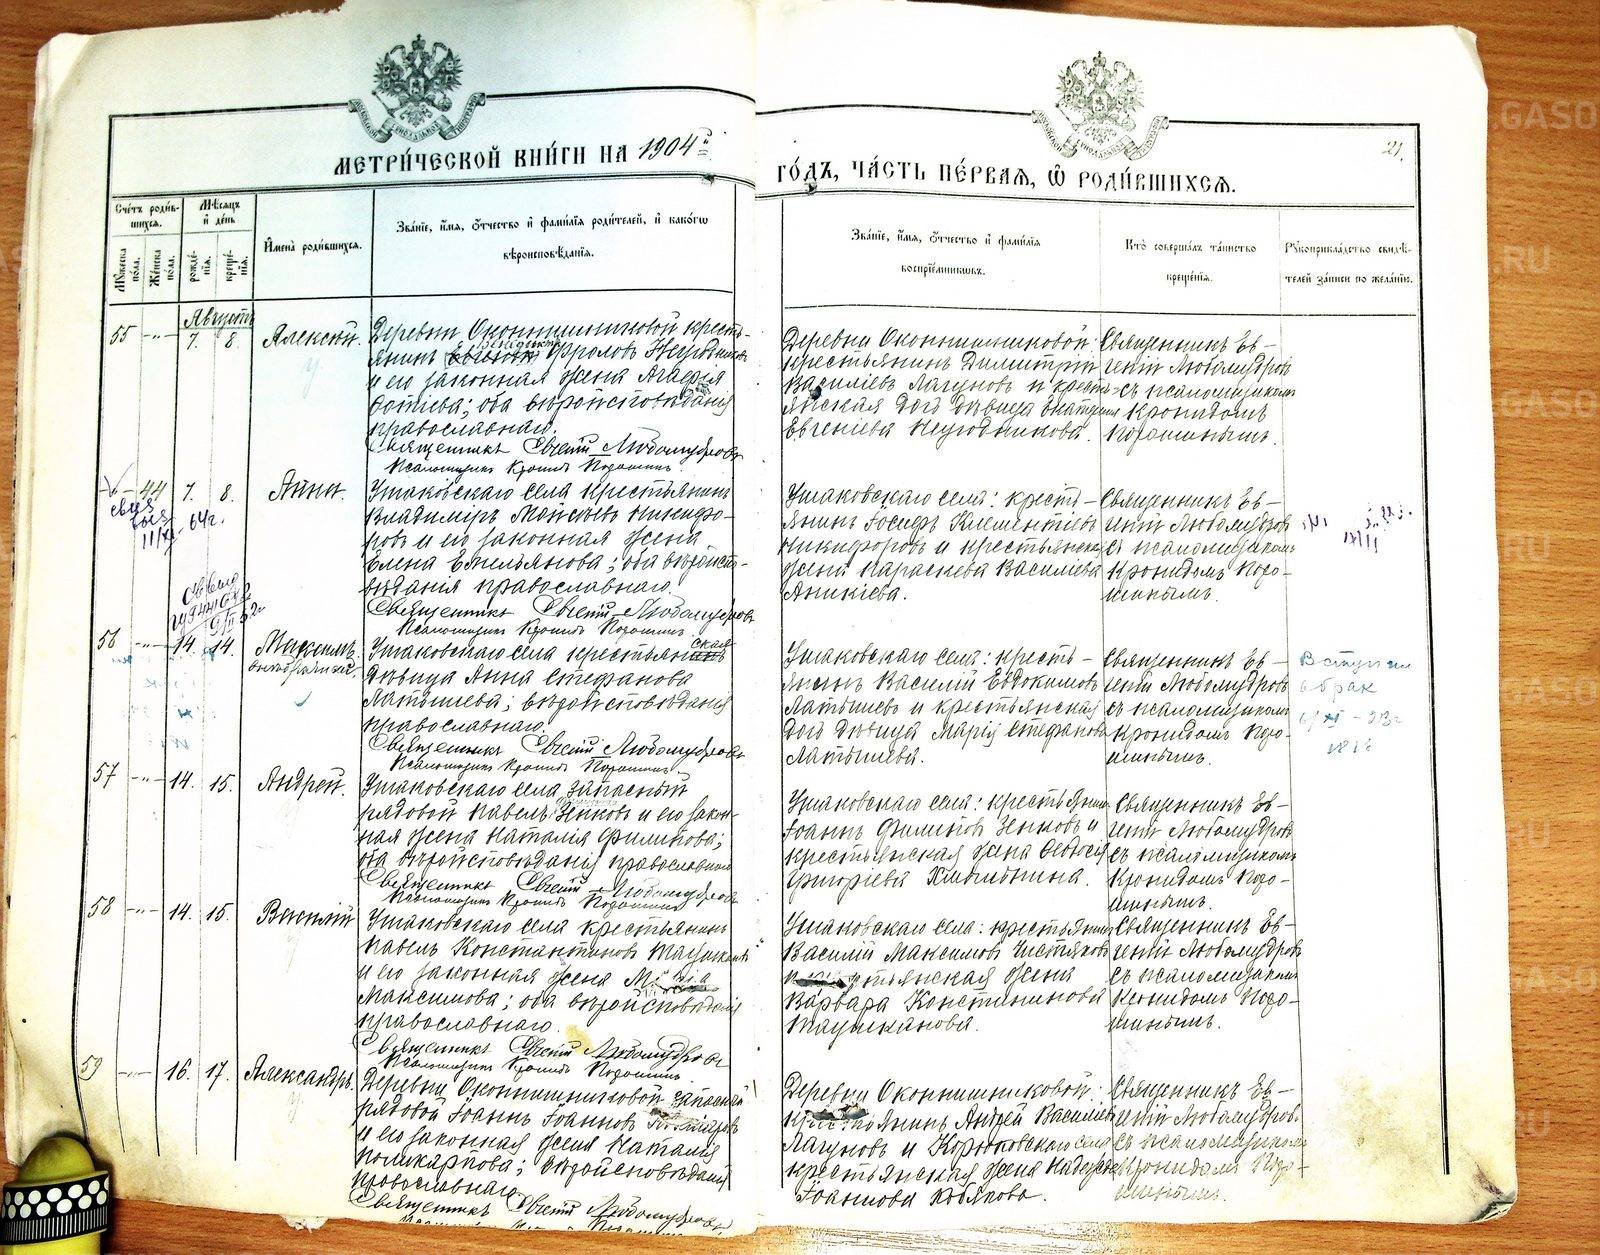 МЕТРИ́ЧЕСКОЙ КНИ́ГИ НА 1904й
ГО́ДЪ, ЧА́СТЬ ПЕ́РВАѦ, Ѽ РОДИ́ВШИХСѦ.
21.
Сче́тъ роди́в-
шихсѧ.
Мꙋ́жеска по́ла.
Же́нска по́ла.
Мѣ́сѧцъ
и҆ де́нь
рожде́-
нїѧ.
креще́-
нїѧ.
И҆мена̀ роди́вшихсѧ.
Зва́нїе, и҆́мѧ, ѻ҆́тчество и҆ фами́лїѧ роди́телей, и҆ како́гѡ
вѣроисповѣ́данїѧ.
Зва́нїе, и҆́мѧ, ѻ҆́тчество и҆ фами́лїѧ
воспрїе́мникѡвъ.
Кто̀ соверша́лъ та́инство
креще́нїѧ.
Рꙋкоприкла́дство свидѣ́-
телей за́писи по жела́нїю.
Августъ
55 -"- 7. 8. Алексій.
Деревни Оконишниковой кресть-
янинъ Фроловъ
и его законная жена Агаѳія
Фотіева; оба вѣроисповѣданія
православнаго.
Священникъ Евгеній Любомудровъ
Псаломщикъ Кронидъ Порошинъ
Деревни Оконишниковой
крестьянинъ Димитрій
Василіевъ Лагуновъ и кресть-
янская дочь дѣвица Екатерина
Евгеніева
Священникъ Ев-
геній Любомудровъ
съ псаломщикомъ
Кронидомъ
Порошинымъ.
-"- 44 7. 8. Анна.
Ушаковскаго села крестьянинъ
Владиміръ Моисѣевъ Никифо-
ровъ и его законная жена
Елена Емельянова; оба вѣроиспо-
вѣданія православнаго.
Священникъ Евгеній Любомудровъ
Псаломщикъ Кронидъ Порошинъ
Ушаковскаго села: кресть-
янинъ Іосифъ Климентіевъ
Никифоровъ и крестьянская
жена Параскева Василіева
Аникіева.
Священникъ Ев-
геній Любомудровъ
съ псаломщикомъ
Кронидомъ Поро-
шинымъ.
56 -"- 14. 14. Максимъ
незаконнорожденный
Ушаковскаго села крестьянская
дѣвица Анна Стефанова
Латышева; вѣроисповѣданія
православнаго.
Священникъ Евгеній Любомудровъ
Псаломщикъ Кронидъ Порошинъ
Ушаковскаго села: кресть-
янинъ Василій Евдокимовъ
Латышевъ и крестьянская
дочь дѣвица Марія Стефанова
Латышева.
Священникъ Ев-
геній Любомудровъ
съ псаломщикомъ
Кронидомъ Поро-
шинымъ.
Вступил
в брак
57 -"- 14. 15. Андрей.
Ушаковскаго села запасный
рядовой Павелъ Зенковъ и его закон-
ная жена Наталія Филипова;
оба вѣроисповѣданія православнаго
Священникъ Евгеній Любомудровъ
Псаломщикъ Кронидъ Порошинъ
Ушаковскаго села: крестьянинъ
Іоаннъ Филиповъ Зенковъ и
крестьянская жена Ѳеодосія
Григоріева
Священникъ Ев-
геній Любомудровъ
съ псаломщикомъ
Кронидомъ Поро-
шинымъ.
58 -"- 14. 15. Василій
Ушаковскаго села крестьянинъ
Павелъ Константиновъ Таушкановъ
и его законная жена Марія
Максимова; оба вѣроисповѣданія
православнаго.
Священникъ Евгеній Любомудровъ
Псаломщикъ Кронидъ Порошинъ
Ушаковскаго села: крестьянинъ
Василій Максимовъ Чистяковъ
и крестьянская жена
Варвара Константинова
Таушканова.
Священникъ Ев-
геній Любомудровъ
съ псаломщикомъ
Кронидомъ Поро-
шинымъ.
59 -"- 16. 17. Александръ.
Деревни Оконишниковой запасный
рядовой Іоаннъ Іоанновъ
и его законная жена Наталія
Поликарпова; вѣроисповѣданія
православнаго
Священникъ Евгеній Любомудровъ
Деревни Оконишниковой:
крестьянинъ Андрей Василіевъ
Лагуновъ и Корюковскаго села
крестьянская жена Надежда
Іоаннова Кобякова.
Священникъ Ев-
геній Любомудровъ
съ псаломщикомъ
Кронидомъ Поро-
шинымъ.